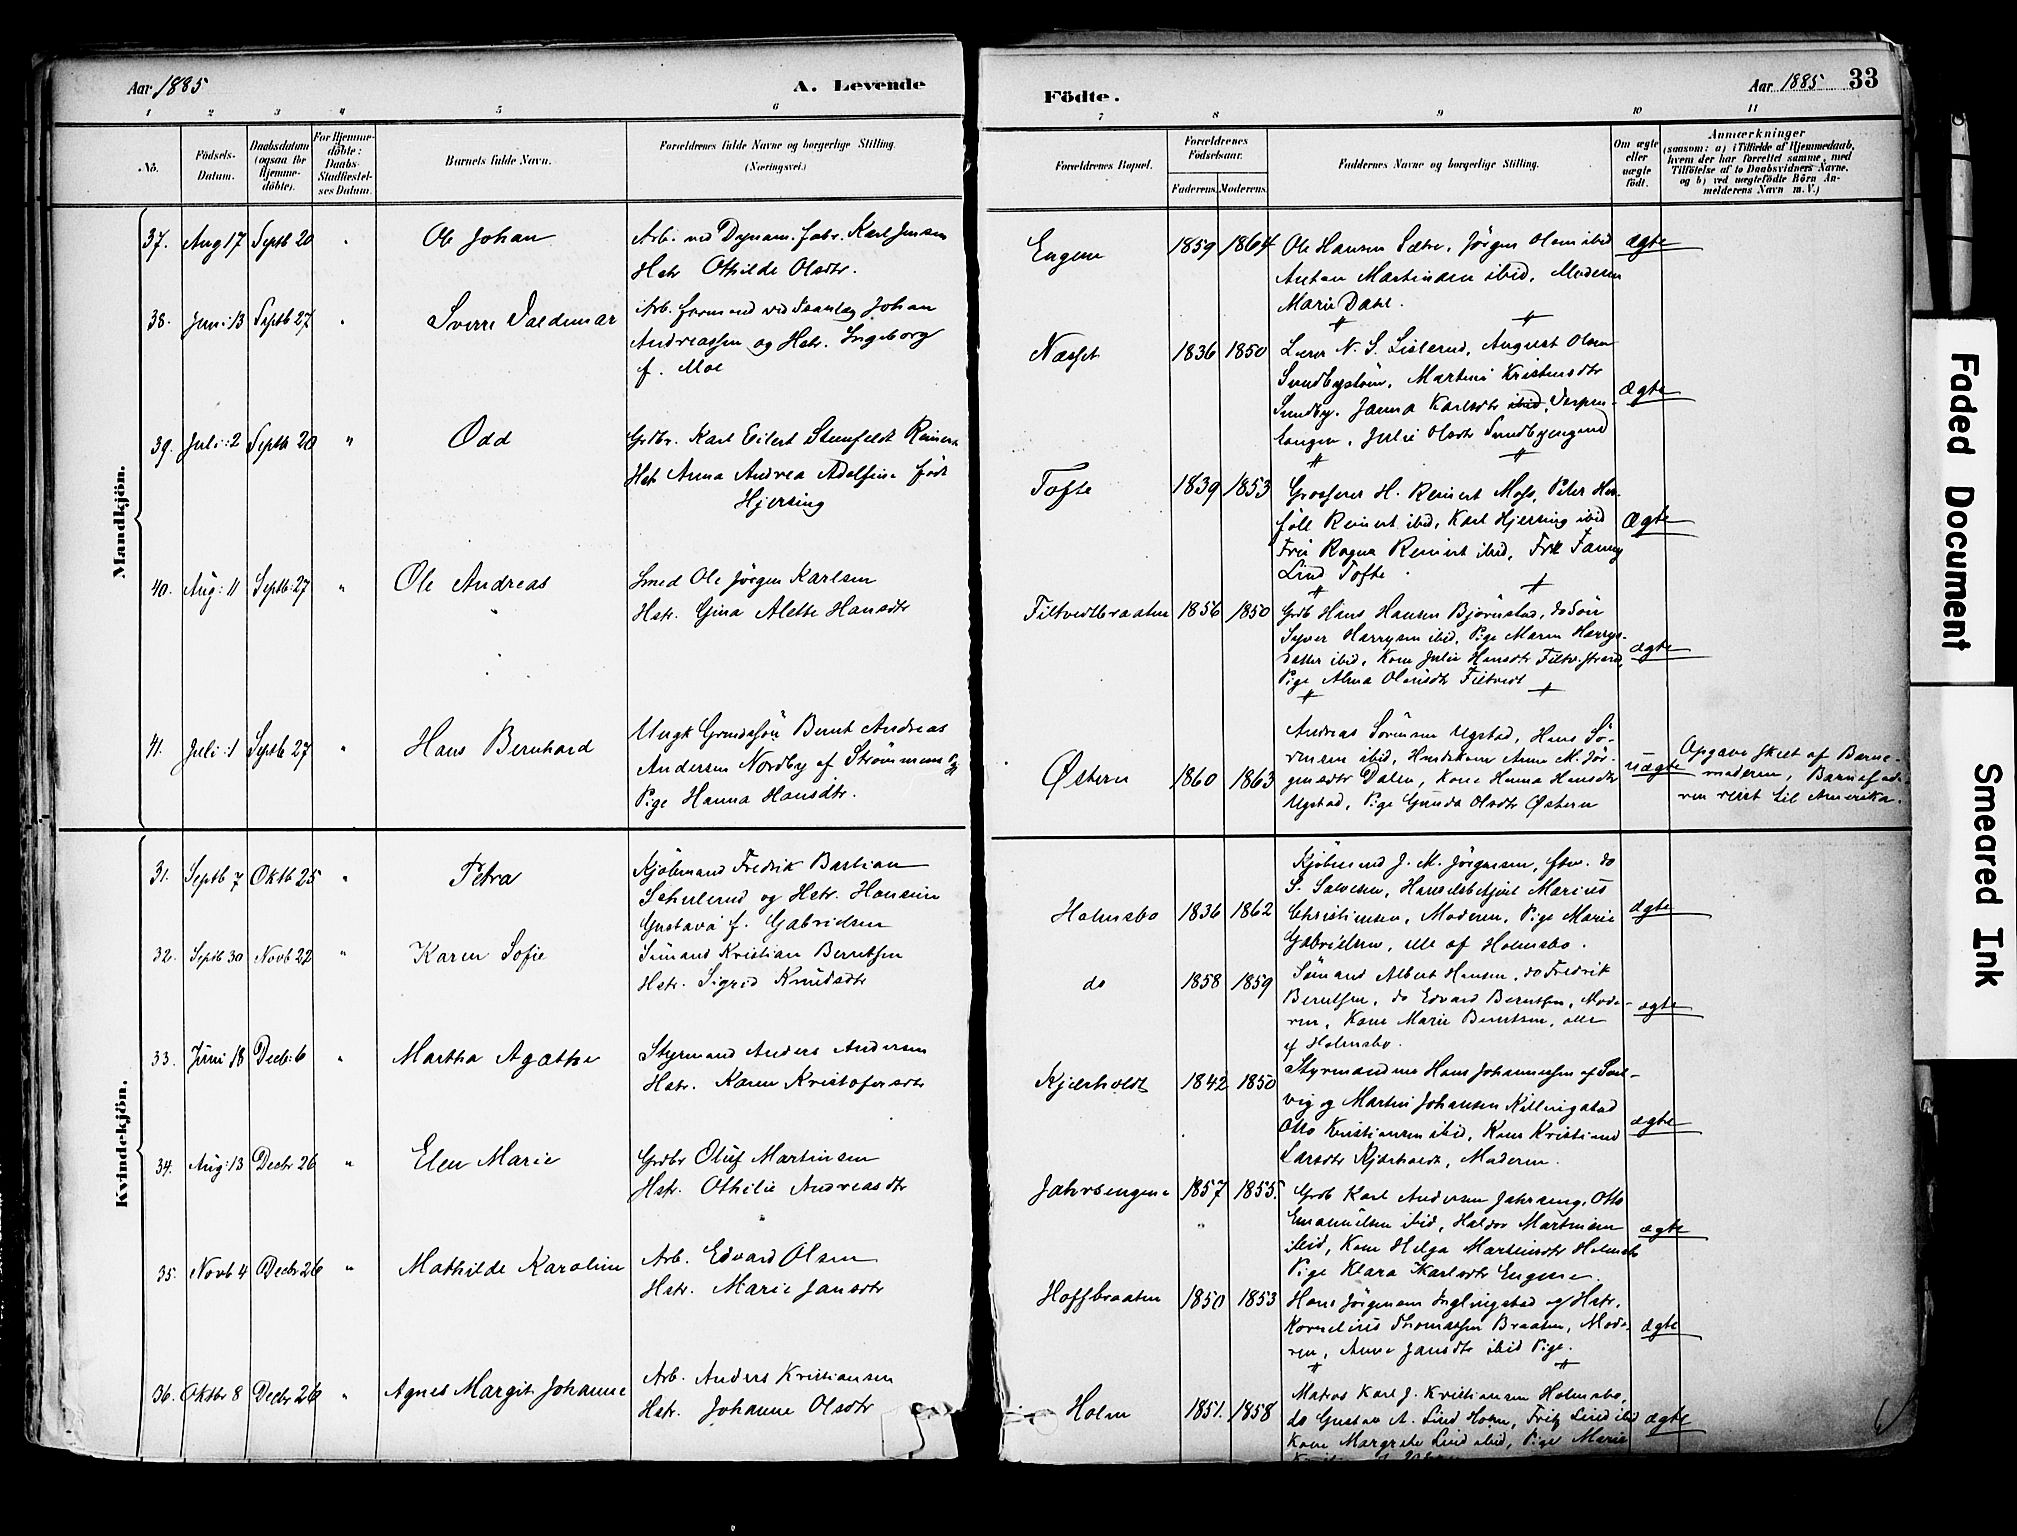 Aar 1885
A. Levende
Födte.
Aar 1885 33
1 2 3 4 5 6 7 8 9 10 11
No.
Födsels-
Datum.
Daabsdatum
(ogsaa for
Hjemme-
döbte).
For Hjemme-
döbte:
Daabs-
Stadfæstel-
ses Datum.
Barnets fulde Navn.
Forældrenes fulde Navne og borgerlige Stilling.
(Næringsvei.)
Forældrenes Bopæl.
Forældrenes
Födselsaar.
Faderens. Moderens.
Faddernes Navne og borgerlige Stilling.
Om ægte
eller
uægte
födt.
Anmærkninger
(saasom: a) i Tilfælde af Hjemmedaab,
hvem der har forrettet samme, med
Tilföielse af to Daabsvidners Navne,
og b) ved uægtefödte Börn An-
melderens Navn m. V.)
Mandkjön.
37. Aug 17 Septb 20 " Ole Johan
Arb. ved Dynam. fabr. Karl Jensen
Hstr Othilde Olsdtr.
Engene 1859 1864
Ole Hansen Sætre, Jörgen Olsen ibid
Anton Martinsen ibid, Moderen
Marie Dahl.
ægte
38. Juni 13 Septb 27 " Sverre Valdemar
Arb. formand ved Isanlæg Johan
Andreassen og Hstr. Ingeborg
f. Moe
Næsset 1836 1850
Lærer N. S. Lislerud, August Olsen
Sundbystöen, Martine Kristensdtr
Sundby. Janna Karlsdtr ibid, Verpen-
tangen, Julie Olsdtr Sundbyengene
ægte
39. Juli: 2 Septb 20 " Odd
Grdbr. Karl Eilert Steenfeldt Reinert
Hstr Anna Andrea Adolfine född
Hjersing
Tofte 1839 1853
Grosserer H. Reinert Moss, Peter Her-
föll Reinert ibid, Karl Hjersing ibid
Fru Ragna Reinert ibid, Frk Fanny
Lind Tofte.
Ægte
40. Aug: 11 Septb: 27 " Ole Andreas
Smed Ole Jörgen Karlsen
Hstr. Gina Alette Hansdtr
Filtvedtbraaten 1856 1850
Grdb Hans Hansen Björnstad, do Sön
Syver Harrysen ibid, Pige Maren Harrys-
datter ibid, Kone Julie Hansdtr Filtv. strand,
Pige Alma Olausdtr Filtvedt
ægte
41. Juli: 1 Septb 27 " Hans Bernhard
Ungk Grmdssön Bernt Andreas
Andersen Nordby af Strömmens Pg
Pige Hanna Hansdtr.
Østern 1860 1863
Andreas Sörensen Ugstad, Hans Sö-
rensen ibid, Husbkone Anne M. Jör-
gensdtr Dalen, Kone Hanna Hansdtr
Ugstad, Pige Gunda Olsdtr Østern
uægte
Opgave skeet af Barne-
moderen, Barnefade-
ren reist til Amerika.
Kvindekjön.
31. Septb 7 Oktb 25 " Petra
Kjöbmand Fredrik Bastian
Schulerud og Hstr. Hansine
Gustava f. Gabrielsen
Holmsbo 1836 1862
Kjöbmand J. M. Jörgensen, fhv. do
S. Salvesen, Handelsbetjent Marius
Christiansen, Moderen, Pige Marie
Gabrielsen, alle af Holmsbo.
ægte
32. Septb 30 Novb 22 " Karen Sofie
Sömand Kristian Berntsen
Hstr. Sigrid Knudsdtr
do 1858 1859
Sömand Albert Hansen, do Fredrik
Berntsen, do Edvard Berntsen, Mode-
ren, Kone Marie Berntsen, alle
af Holmsbo.
ægte
33. Juni 18 Decb: 6 " Martha Agathe
Styrmand Anders Andersen
Hstr. Karen Kristofersdtr
Kjærholdt 1842 1850
Styrmændene Hans Johannessen af Sol-
vig og Martin Johansen Killingstad
Otto Kristiansen ibid, Kone Kristiane
Larsdtr Kjærholdt, Moderen.
ægte
34. Aug: 13 Decbr 26 " Elen Marie
Grdbr Oluf Martinsen
Hstr. Othilie Andreasdtr
Jahrsengene 1857 1855.
Grdb Karl Andersen Jahrseng, Otto
Emanuelsen ibid, Haldor Martinsen
ibid, Kone Helga Martinsdtr Holmsb
Pige Klara Karlsdtr Engene.
ægte
35. Novb 4 Decbr 26 " Mathilde Karoline
Arb. Edvard Olsen
Hstr. Marie Jansdtr
Hoffbraaten 1850 1853
Hans Jörgensen Inglingstad og Hstr.
Kornelius Thomassen Braaten, Mode-
ren, Anne Jansdtr ibid Pige.
ægte
36. Oktbr 8 Decbr 26 " Agnes Margit Johanne
Arb. Anders Kristiansen
Hstr. Johanne Olsdtr
Holm 1851. 1858
Matros Karl J. Kristiansen Holmsbo,
do Gustav A. Lind Holm, Fritz Lind ibid
Kone Margrethe Lind ibid, Pige Marie
ægte
Faded Document
Smeared Ink